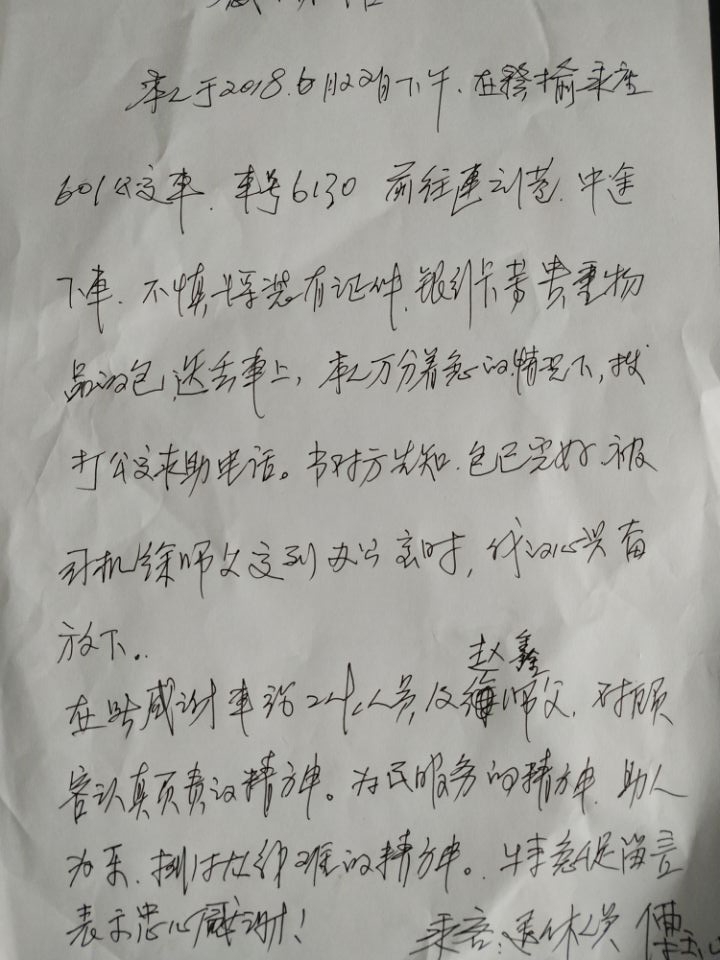 感谢信
本人于2018.6月22日下午.在赣榆乘座
601公交车.车号6130 前往连云港.中途
下车.不慎将装有证件.银行卡等贵重物
品的包.遗丢车上,本人万分着急的情况下,拨
打公交求助电话。当对方告知.包已完好.被
司机徐师父交到办公室时,我的心兴奋
放下..
赵鑫
在此感谢车站工作人员,及师父.对顾
客认真负责的精神。为民服务的精神.助人
为乐.排忧解难的精神。.特急促留言
表示忠心感谢!
乘客:退休人员